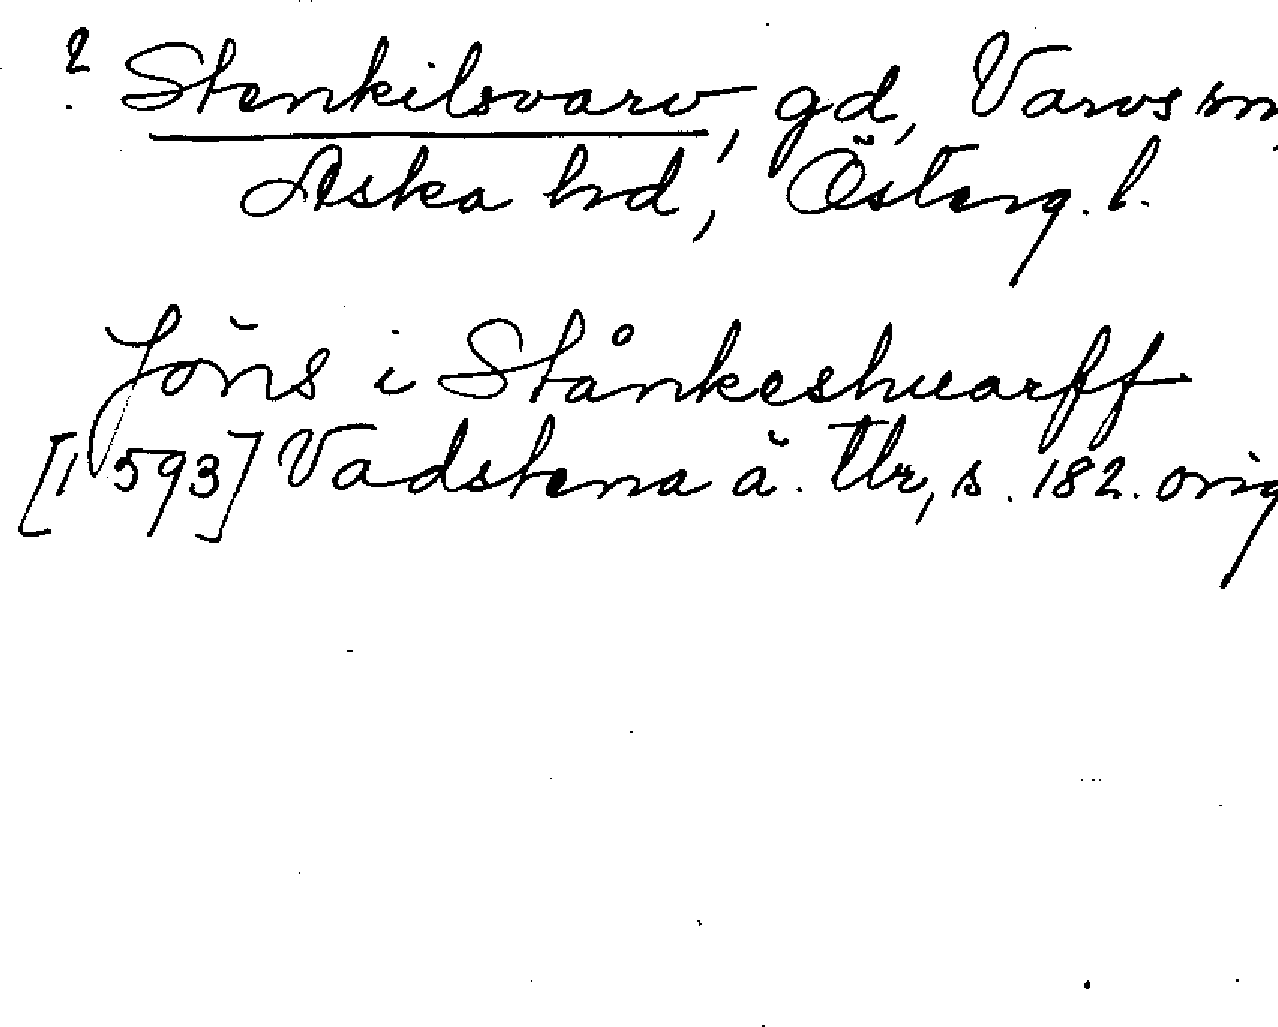 ? Stenkilsvarv, gd, Varvs sn.
Aska hd, Österg. l.
Jöns i Stånkeshuarff
[1593] Vadstena ä. Tb, s. 182. orig